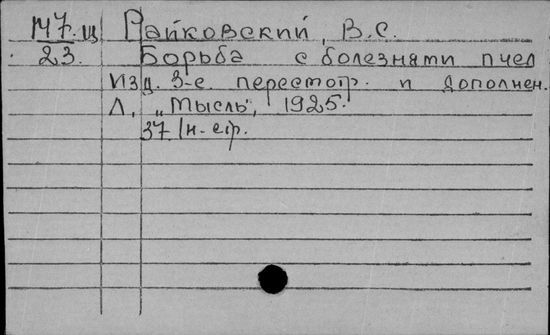 М7.ц Райковский, В.С.
23. Борьба с болезнями пчел
Изд. 3-е. перестотр. и дополнен.
Л, „Мысль", 1925.
37 | н. стр.